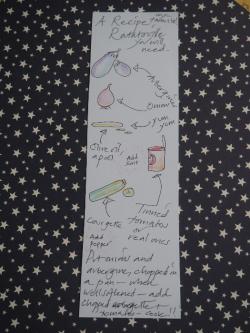 A Recipe
Ratatouille
you will
need
Aubergines
Onions
yum
yum
Olive oil,
a pool
Add
Salt
Tinned
tomatoes
or
real ones
Courgette
Add
Pepper
Put onions and
aubergine, chopped in
a pan - when
well softened - add
chopped courgette +
tomatoes - cook!!